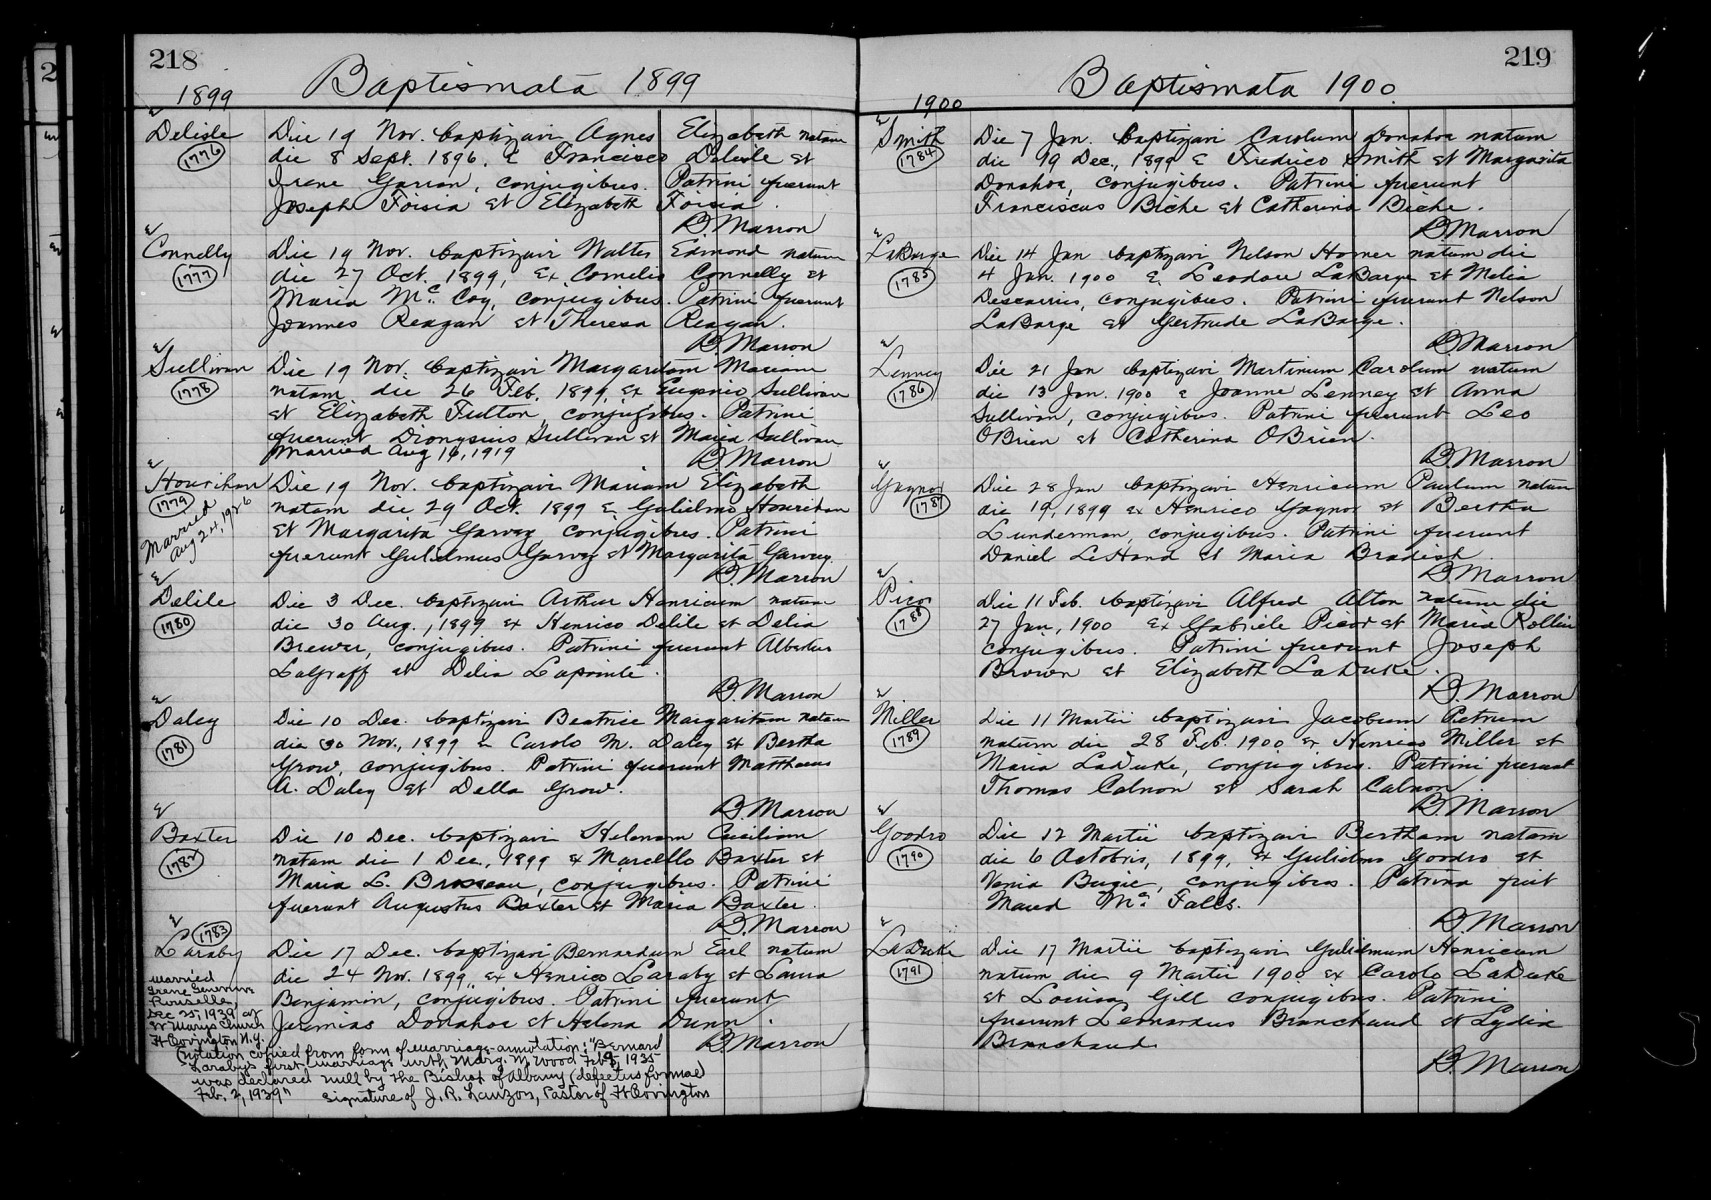 218
Baptismata 1899
1899
Delisle
1776
Die 19 Nov. baptizavi Agnes Elizabeth natam
die 8 Sept. 1896, e Francisco Delisle et
Irene Garron, conjugibus. Patrini fuerunt
Joseph Foisia et Elizabeth Foisia.
B. Marron
Connelly
1777
Die 19 Nov. baptizavi Walter Edmond natum
die 27 Oct. 1899, ex Cornelio Connelly et
Maria McCoy, conjugibus. Patrini fuerunt
Joannes Reagan et Theresa Reagan.
B. Marron
Sullivan
1778
Die 19 Nov. baptizavi Margaritam Mariam
natam die 26 Feb. 1899, ex Eugenio Sullivan
et Elizabeth Fulton, conjugibus. Patrini
fuerunt Dionysius Sullivan et Maria Sullivan
Married Aug 16, 1919
B. Marron
Hourihan
1779
Married
Aug 24, 1926
Die 19 Nov. baptizavi Mariam Elizabeth
natam die 29 Oct. 1899 e Gulielmo Hourihan
et Margarita Garvey conjugibus. Patrini
fuerunt Gulielmus Garvey et Margarita Garvey
B. Marron
Delile
1780
Die 3 Dec. baptizavi Arthur Henricum natum
die 30 Aug., 1899 ex Henrico Delile et Delia
Brewer, conjugibus. Patrini fuerunt Albertus
LaGraff et Delia Lapointe.
B. Marron
Daley
1781
Die 10 Dec. baptizavi Beatrice Margaritam natam
die 30 Nov., 1899 e Carolo M. Daley et Bertha
Grow, conjugibus. Patrini fuerunt Matthaeus
A. Daley et Della Grow.
B. Marron
Baxter
1782
Die 10 Dec. baptizavi Helenam Ceciliam
natam die 1 Dec., 1899 ex Marcello Baxter et
Maria L. Brosseau, conjugibus. Patrini
fuerunt Augustus Baxter et Maria Baxter.
B. Marron
1783
Laraby
Die 17 Dec. baptizavi Bernardum Earl natum
die 24 Nov. 1899, ex Henrico Laraby et Laura
Benjamin, conjugibus. Patrini fuerunt
Jeremias Donahoe et Helena Dunn.
B. Marron
married
Irene Genevieve
Rouselle,
Dec 25, 1939 at
St Mary's Church
Ft Covington N.Y.
(notation copied from form of marriage-annotation: "Bernard
Laraby's first marriage with Marg. M. Wood Feb 9, 1935
was declared null by the Bishop of Albany (defectus formae)
Feb. 2, 1939"
signature of J. R. Lauzon, Pastor of Ft Covington
219
Baptismata 1900
1900
Smith
1784
Die 7 Jan. baptizavi Carolum Donahoe natum
die 19 Dec., 1899 e Fredrico Smith et Margarita
Donahoe, conjugibus. Patrini fuerunt
Franciscus Biche et Catherina Biche.
B. Marron
LaBarge
1785
Die 14 Jan baptizavi Nelson Homer natum die
4 Jan. 1900 e Leodore LaBarge et Melia
Descarries, conjugibus. Patrini fuerunt Nelson
LaBarge et Gertrude LaBarge.
B. Marron
Lenney
1786
Die 21 Jan baptizavi Martinum Carolum natum
die 13 Jan. 1900 e Joanne Lenney et Anna
Sullivan, conjugibus. Patrini fuerunt Leo
OBrien et Catherina OBrien.
B. Marron
Gaynor
1787
Die 28 Jan baptizavi Henricum Paulum natum
die 19, 1899 ex Henrico Gaynor et Bertha
Lunderman, conjugibus. Patrini fuerunt
Daniel LeHand et Maria Bradish
B. Marron
Picor
1788
Die 11 Feb. baptizavi Alfred Alton natum die
27 Jan, 1900 ex Gabriele Picor et Maria Rollin
conjugibus. Patrini fuerunt Joseph
Brown et Elizabeth LaDuke.
B. Marron
Miller
1789
Die 11 Martii baptizavi Jacobum Petrum
natum die 28 Feb. 1900 ex Henrico Miller et
Maria LaDuke, conjugibus. Patrini fuerunt
Thomas Calnon et Sarah Calnon
B. Marron
Goodro
1790
Die 12 Martii baptizavi Bertham natam
die 6 Octobris, 1899, ex Gulielmo Goodro et
Venia Bugie, conjugibus. Patrina fuit
Maud McFalls.
B. Marron
LaDuke
1791
Die 17 Martii baptizavi Gulielmum Henricum
natum die 9 Martii 1900 ex Carolo LaDuke
et Louisa Gill conjugibus. Patrini
fuerunt Leonardus Branchaud et Lydia
Branchaud
B. Marron